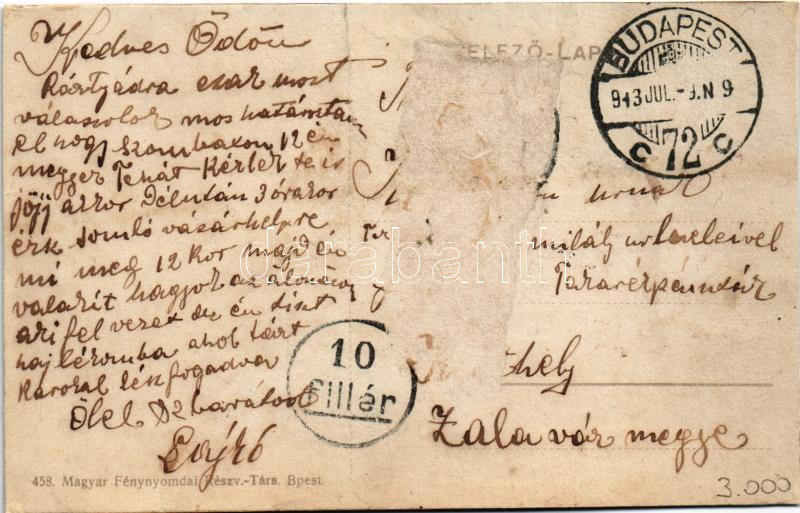 Kedves Ödön
Kártyádra csak most
válaszolok mos határoztam
el hogy szombaton 12 én
megyek Tehát Kérlek te is
jöjj akkor Délután 3 órakor
érk somló vásárhelyre
mi meg 12 kor majd én
valakit hagyok az állomáson
aki fel vezet
ahol tárt
Karokal lész fogadva
Ölel barátod
Lajkó
458. Magyar Fénynyomdai Részv.-Társ. Bpest.
ELEZŐ-LAP
BUDAPEST
913 JUL.-9.N 9
C 72 C
10
fillér
úrnak
mihály
Takarékpénztár
hely
Zala vár megye
3.000
darabanth